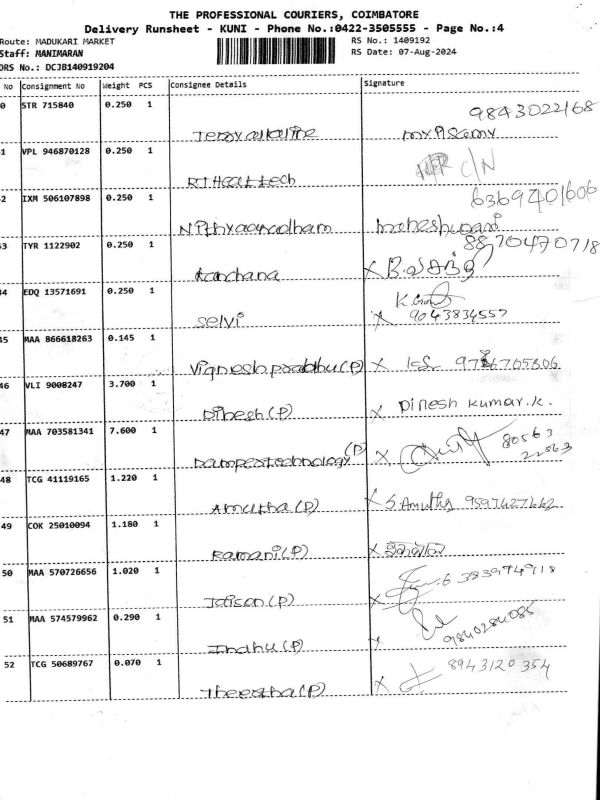 THE PROFESSIONAL COURIERS, COIMBATORE
Delivery Runsheet - KUNI - Phone No.:0422-3505555 - Page No.:4
Route: MADUKARI MARKET RS No.: 1409192
Staff: MANIMARAN RS Date: 07-Aug-2024
DRS No.: DCJB140919204
No Consignment No Weight PCS Consignee Details Signature
0 STR 715840 0.250 1 9843022168
1 VPL 946870128 0.250 1 C/N
RJ Heat tech
2 IXM 506107898 0.250 1 6369401606
Maheshwari
3 TYR 1122902 0.250 1 8870470718
Kanchana
4 EDQ 13571691 0.250 1
Selvi X 9043834557
45 MAA 866618263 0.145 1
Vignesh prabhu (P) X
46 VLI 9008247 3.700 1
Dinesh (P) X Dinesh Kumar.K.
47 MAA 703581341 7.600 1 80563
technology (P) X 22563
48 TCG 41119165 1.220 1
Amutha (P) X S. Amutha 9597427662
49 COK 25010094 1.180 1
Ramani (P) X
50 MAA 570726656 1.020 1 6383974918
Jaison (P) X
51 MAA 574579962 0.290 1
Indhu (P) X 9840284085
52 TCG 50689767 0.070 1 8943120354
Theertha (P) X